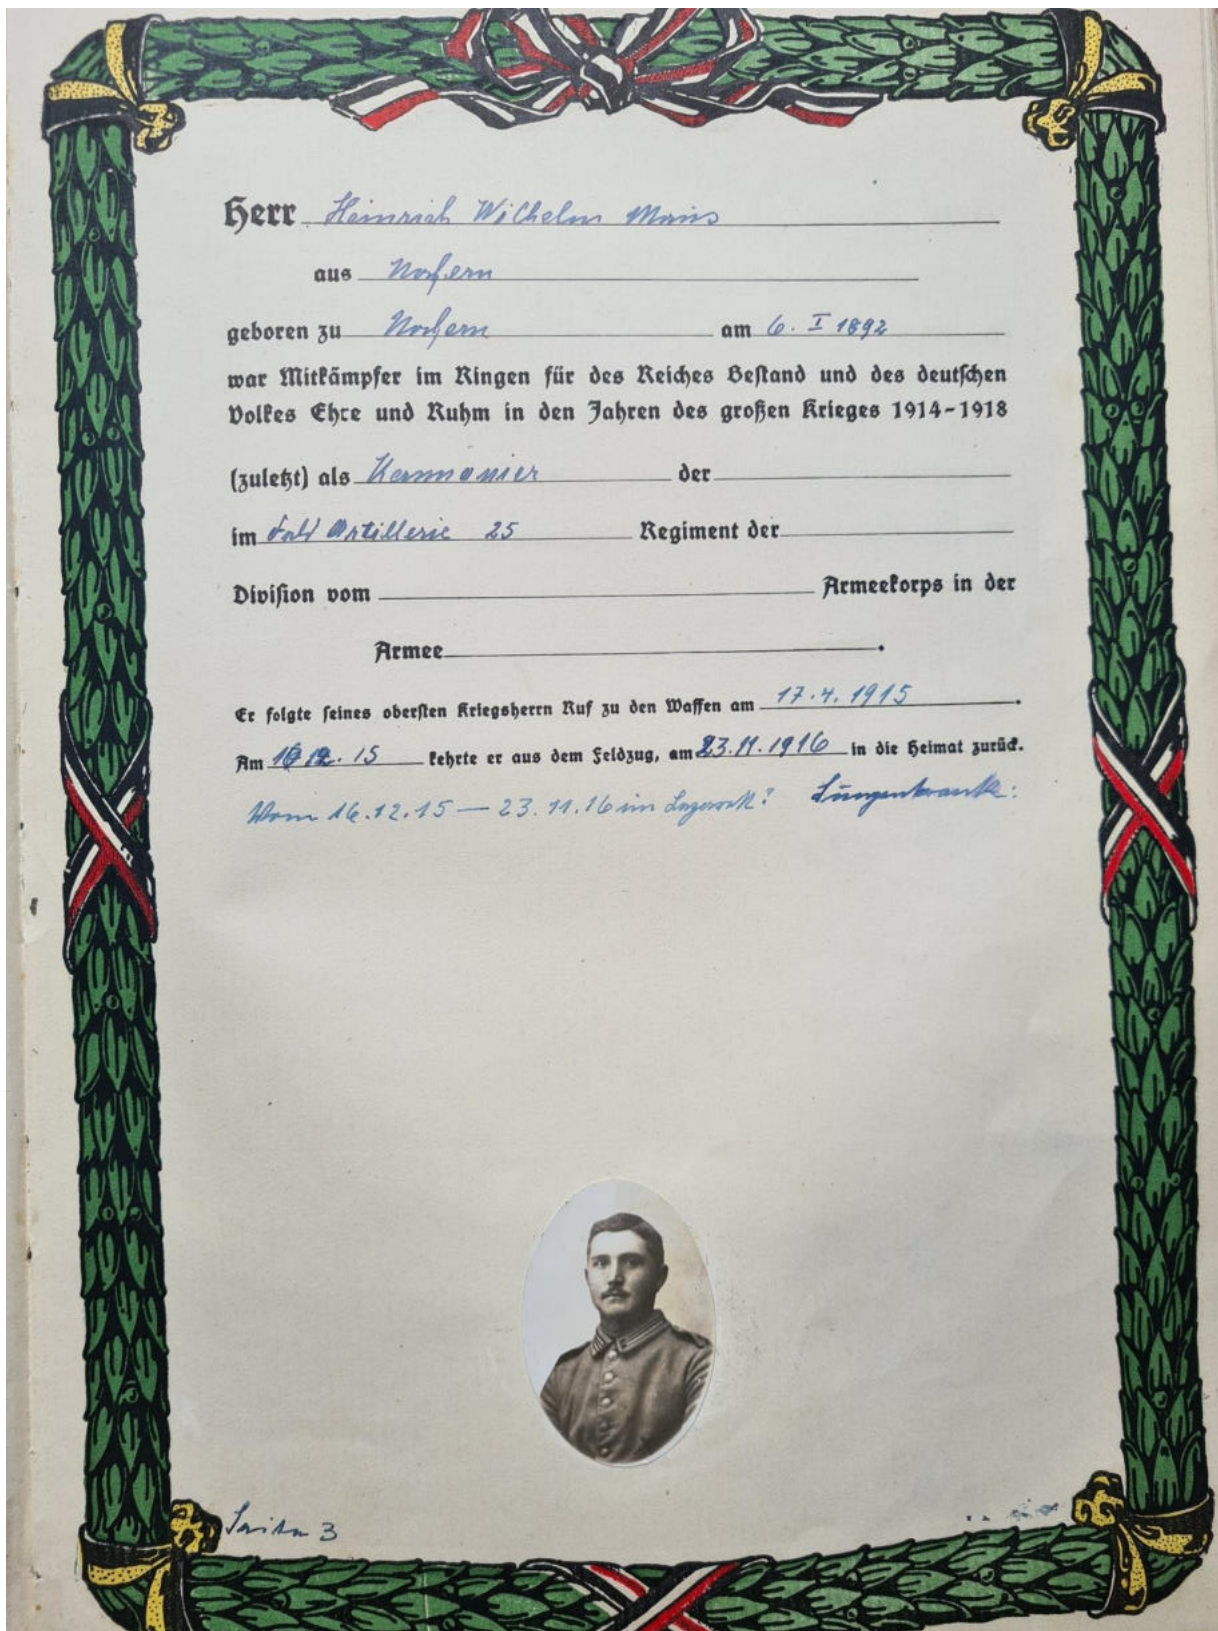 Herr Heinrich Wilhelm Mais
aus
geboren zu am 6. I 1892
war Mitkämpfer im Ringen für des Reiches Bestand und des deutschen
Volkes Ehre und Ruhm in den Jahren des großen Krieges 1914-1918
(zuletzt) als Kannonier der
im Feld Artillerie 25 Regiment der
Division vom Armeekorps in der
Armee .
Er folgte seines obersten Kriegsherrn Ruf zu den Waffen am 17.4.1915 .
Am 16 12. 15 kehrte er aus dem Feldzug, am 23.11.1916 in die Heimat zurück.
Vom 16.12.15 — 23.11.16 im Lazarett? Lungenkrank:
Seite 3